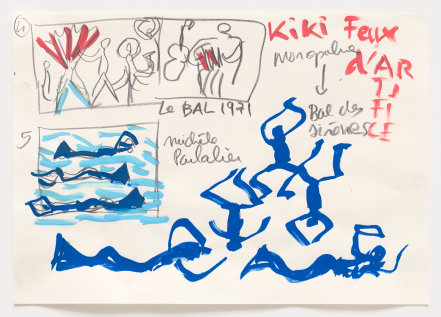 4
Kiki Feux
d'ARTIFICE
Monopolie
↓
Le BAL 1971
Bal des
sirènes
5
Michèle